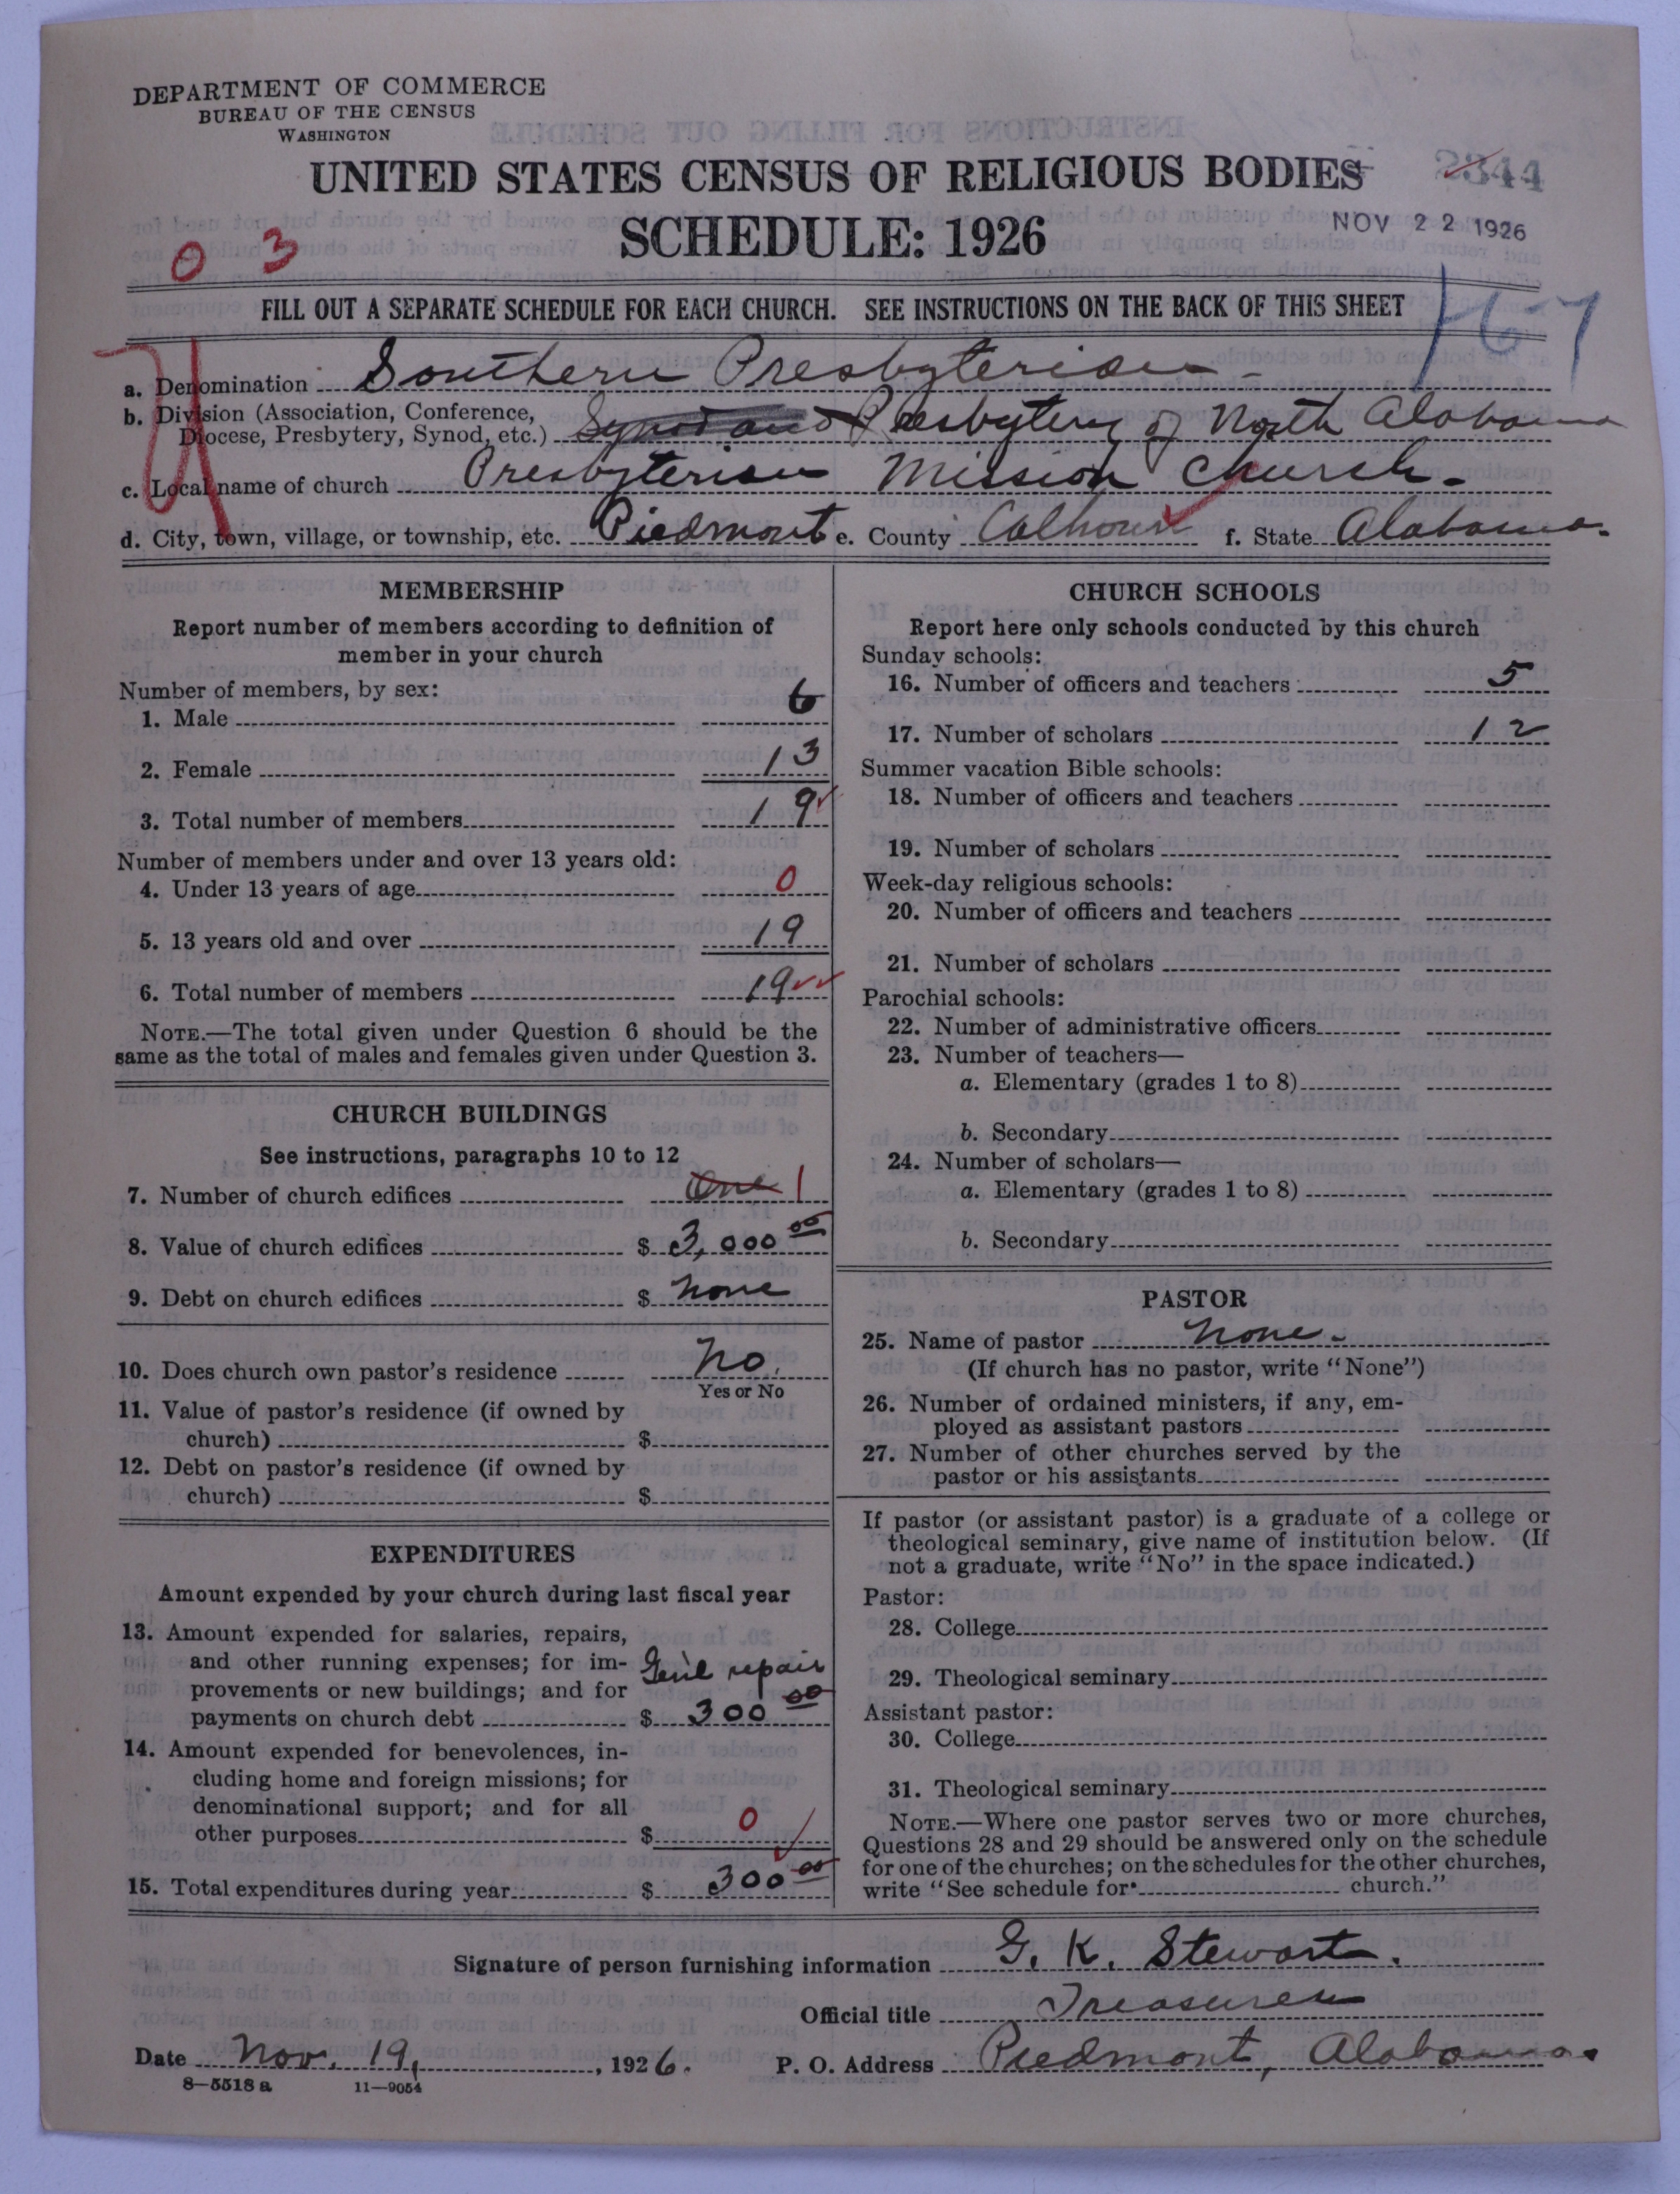 DEPARTMENT OF COMMERCE
BUREAU OF THE CENSUS
WASHINGTON
UNITED STATES CENSUS OF RELIGIOUS BODIES
2344
SCHEDULE: 1926
NOV 22 1926
0 3
FILL OUT A SEPARATE SCHEDULE FOR EACH CHURCH. SEE INSTRUCTIONS ON THE BACK OF THIS SHEET
16-7
a. Denomination Southern Presbyterian
b. Division (Association, Conference,
Diocese, Presbytery, Synod, etc.) Synod and Presbytery of North Alabama
c. Local name of church Presbyterian Mission Church.
d. City, town, village, or township, etc. Piedmont e. County Calhoun f. State Alabama.
MEMBERSHIP
Report number of members according to definition of
member in your church
Number of members, by sex:
1. Male 6
2. Female 13
3. Total number of members 19
Number of members under and over 13 years old:
4. Under 13 years of age 0
5. 13 years old and over 19
6. Total number of members 19
NOTE.—The total given under Question 6 should be the
same as the total of males and females given under Question 3.
CHURCH BUILDINGS
See instructions, paragraphs 10 to 12
7. Number of church edifices One 1
8. Value of church edifices $ 3,000 00
9. Debt on church edifices $ None
10. Does church own pastor's residence No.
Yes or No
11. Value of pastor's residence (if owned by
church) $
12. Debt on pastor's residence (if owned by
church) $
EXPENDITURES
Amount expended by your church during last fiscal year
13. Amount expended for salaries, repairs,
and other running expenses; for im- Gen'l repair
provements or new buildings; and for
payments on church debt $ 300 00
14. Amount expended for benevolences, in-
cluding home and foreign missions; for
denominational support; and for all
other purposes $ 0
15. Total expenditures during year $ 300 00
CHURCH SCHOOLS
Report here only schools conducted by this church
Sunday schools:
16. Number of officers and teachers 5
17. Number of scholars 12
Summer vacation Bible schools:
18. Number of officers and teachers
19. Number of scholars
Week-day religious schools:
20. Number of officers and teachers
21. Number of scholars
Parochial schools:
22. Number of administrative officers
23. Number of teachers—
a. Elementary (grades 1 to 8)
b. Secondary
24. Number of scholars—
a. Elementary (grades 1 to 8)
b. Secondary
PASTOR
25. Name of pastor None.
(If church has no pastor, write "None")
26. Number of ordained ministers, if any, em-
ployed as assistant pastors
27. Number of other churches served by the
pastor or his assistants
If pastor (or assistant pastor) is a graduate of a college or
theological seminary, give name of institution below. (If
not a graduate, write "No" in the space indicated.)
Pastor:
28. College
29. Theological seminary
Assistant pastor:
30. College
31. Theological seminary
NOTE.—Where one pastor serves two or more churches,
Questions 28 and 29 should be answered only on the schedule
for one of the churches; on the schedules for the other churches,
write "See schedule for church."
Signature of person furnishing information G. K. Stewart.
Official title Treasurer
Date Nov. 19, 1926. P. O. Address Piedmont, Alabama.
8—5518 a 11—9054